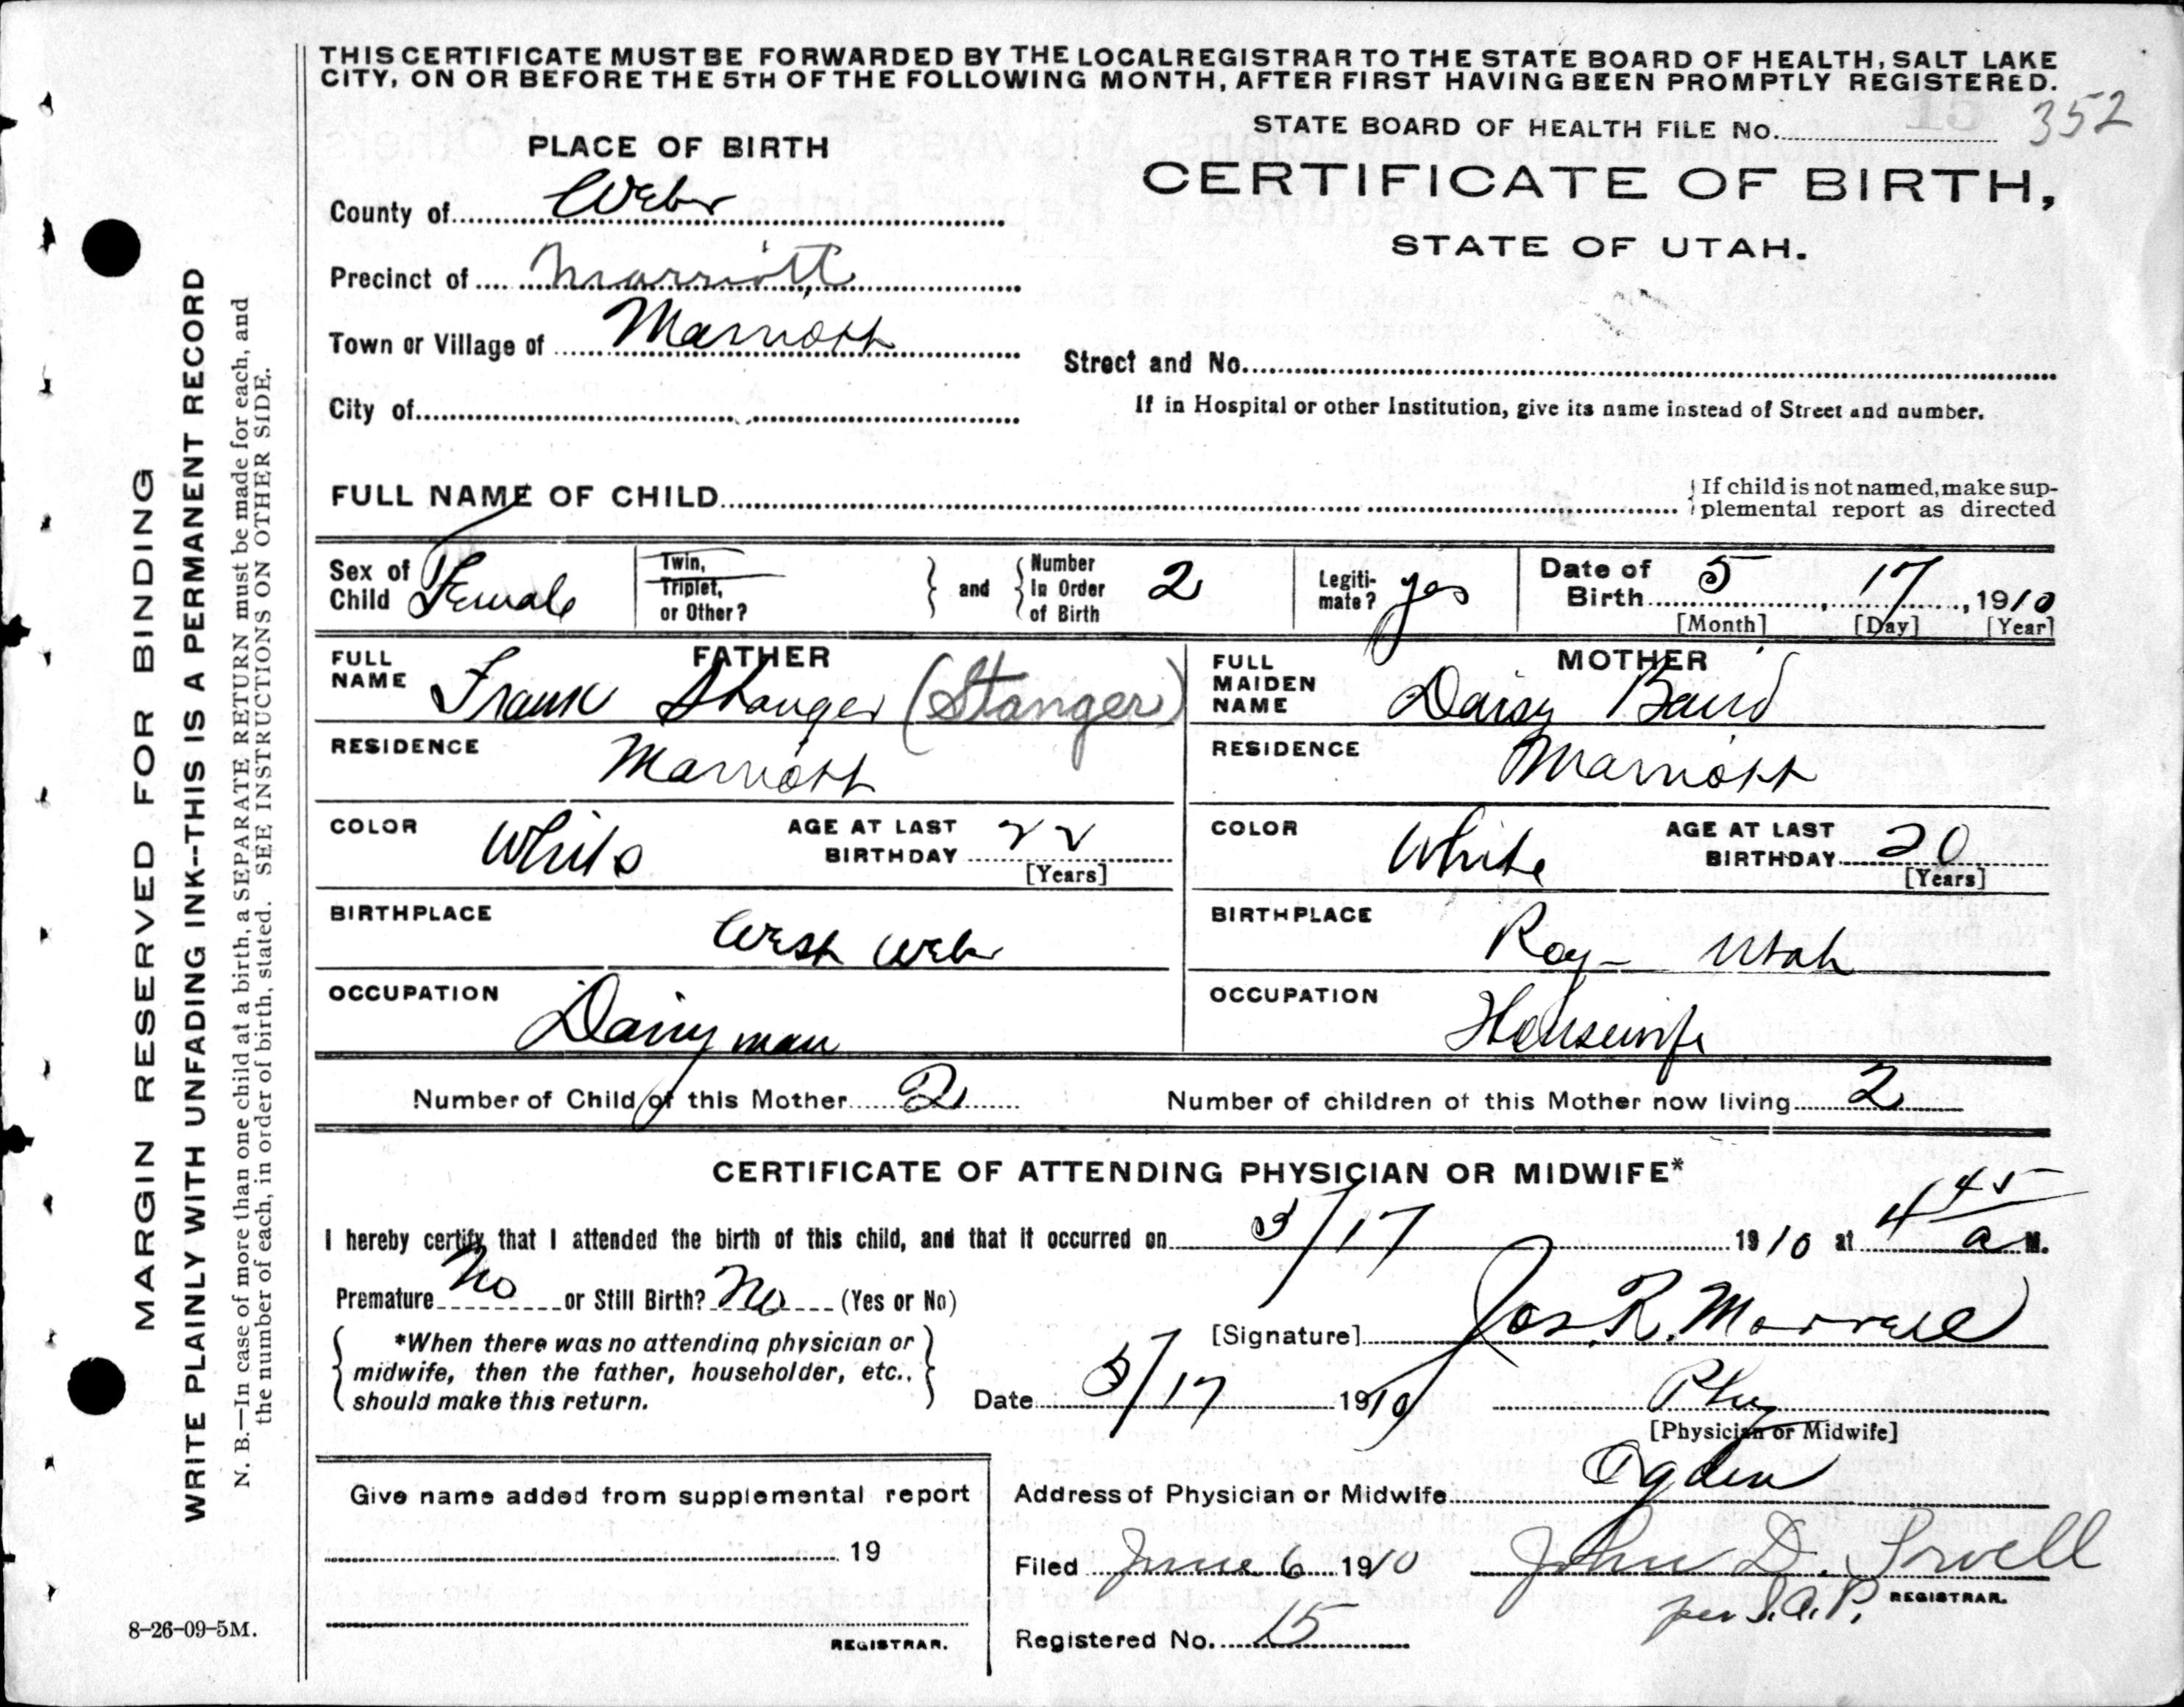 THIS CERTIFICATE MUST BE FORWARDED BY THE LOCAL REGISTRAR TO THE STATE BOARD OF HEALTH, SALT LAKE
CITY, ON OR BEFORE THE 5TH OF THE FOLLOWING MONTH, AFTER FIRST HAVING BEEN PROMPTLY REGISTERED.
STATE BOARD OF HEALTH FILE No. 352
PLACE OF BIRTH
CERTIFICATE OF BIRTH,
STATE OF UTAH.
County of Weber
Precinct of Marriott
Town or Village of Marriott
Street and No.
City of
If in Hospital or other Institution, give its name instead of Street and number.
FULL NAME OF CHILD
If child is not named, make sup-
plemental report as directed
Sex of Child Female
Twin, Triplet, or Other?
and
Number In Order of Birth 2
Legiti-mate? yes
Date of Birth 5, 17, 1910
[Month] [Day] [Year]
FATHER
FULL NAME Frank Stanger (Stanger)
RESIDENCE Marriott
COLOR White
AGE AT LAST BIRTHDAY 22
[Years]
BIRTHPLACE West Weber
OCCUPATION Dairyman
MOTHER
FULL MAIDEN NAME Daisy Baird
RESIDENCE Marriott
COLOR White
AGE AT LAST BIRTHDAY 20
[Years]
BIRTHPLACE Roy - Utah
OCCUPATION Housewife
Number of Child of this Mother 2
Number of children of this Mother now living 2
CERTIFICATE OF ATTENDING PHYSICIAN OR MIDWIFE*
I hereby certify that I attended the birth of this child, and that it occurred on 5/17 1910 at 4 45 a M.
Premature No or Still Birth? No (Yes or No)
*When there was no attending physician or
midwife, then the father, householder, etc.,
should make this return.
[Signature] Jos. R. Morrell
Date 5/17 1910
Phy
[Physician or Midwife]
Address of Physician or Midwife Ogden
Give name added from supplemental report
19
REGISTRAR.
Filed June 6 1910
John D.
per
REGISTRAR.
Registered No. 15
MARGIN RESERVED FOR BINDING
WRITE PLAINLY WITH UNFADING INK--THIS IS A PERMANENT RECORD
N. B.—In case of more than one child at a birth, a SEPARATE RETURN must be made for each, and
the number of each, in order of birth, stated. SEE INSTRUCTIONS ON OTHER SIDE.
8-26-09-5M.